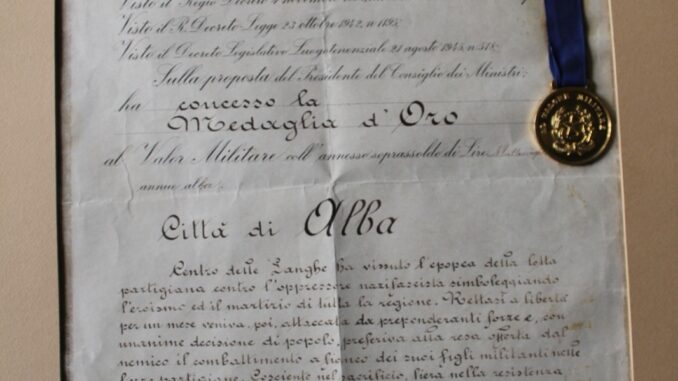 Visto il Regio Decreto 4 novembre
Visto il R. Decreto-Legge 23 ottobre 1942, n. 1195;
Visto il Decreto Legislativo Luogotenenziale 21 agosto 1945, n. 518;
Sulla proposta del Presidente del Consiglio dei Ministri;
ha concesso la
Medaglia d'Oro
al Valor Militare coll'annesso soprassoldo di Lire
annue alla
Città di Alba
Centro delle Langhe ha vissuto l'epopea della lotta
partigiana contro l'oppressore nazifascista simboleggiando
l'eroismo ed il martirio di tutta la regione. Rettasi a libertà
per un mese veniva, poi, attaccata da preponderanti forze e, con
unanime decisione di popolo, preferiva alla resa offerta dal
nemico il combattimento a fianco dei suoi figli militanti nelle
forze partigiane. Cosciente nel sacrificio, fiera nella resistenza
AL VALORE MILITARE